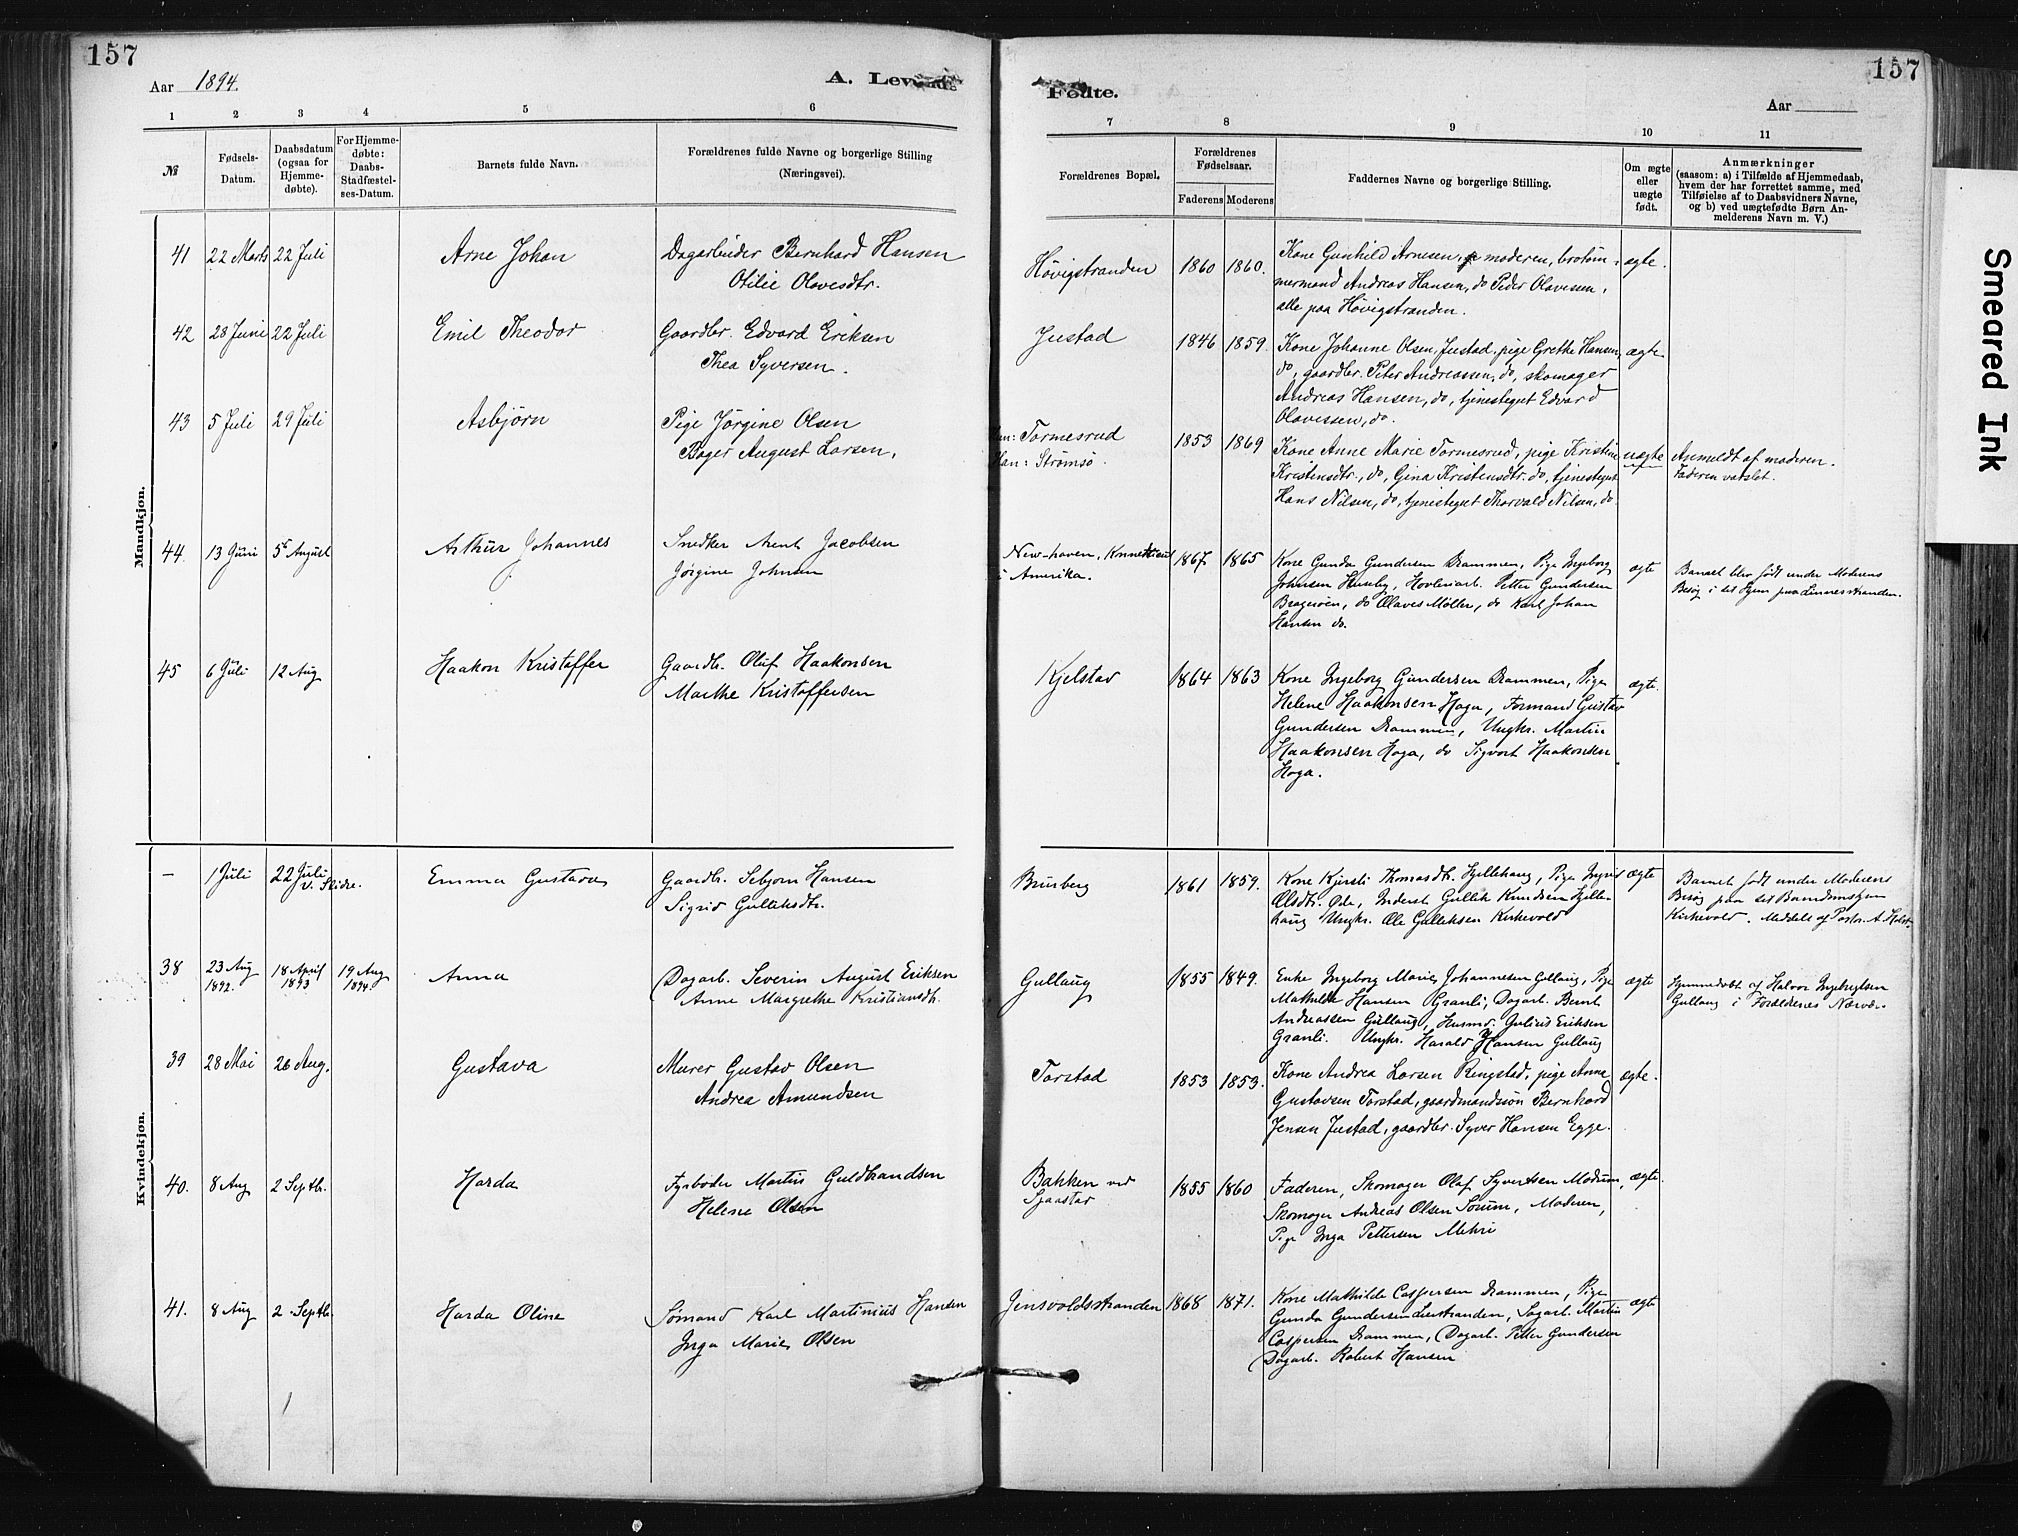 157
157
Aar 1894.
A. Levende
Fødte.
Aar
1 2 3 4 5 6 7 8 9 10 11
№
Fødsels-
Datum.
Daabsdatum
(ogsaa for
Hjemme-
døbte).
For Hjemme-
døbte:
Daabs-
Stadfæstel-
ses-Datum.
Barnets fulde Navn.
Forældrenes fulde Navne og borgerlige Stilling
(Næringsvei).
Forældrenes Bopæl.
Forældrenes
Fødselsaar.
Faderens Moderens
Faddernes Navne og borgerlige Stilling.
Om ægte
eller
uægte
født.
Anmærkninger
(saasom: a) i Tilfælde af Hjemmedaab,
hvem der har forrettet samme, med
Tilføielse af to Daabsvidners Navne,
og b) ved uægtefødte Børn An-
melderens Navn m. V.)
Smeared Ink
Mandkjøn.
41 22 Marts 22 Juli Arne Johan Dagarbeider Bernhard Hansen
Otilie Olavesdtr.
Høvigstranden 1860 1860. Kone Gunhild Arnesen, moderen, brotøm-
mermand Andreas Hansen, do Peder Olavesen,
alle paa Høvigstranden.
ægte.
42 23 Juni 22 Juli Emil Theodor Gaardbr. Edvard Eriksen
Thea Syversen.
Justad 1846 1859. Kone Johanne Olsen, Justad, pige Grethe Hansen,
do, gaardbr. Peter Andreassen, do, skomager
Andreas Hansen, do, tjenestegut Edvard
Olavessen, do.
ægte
43 5 Juli 29 Juli Asbjørn Pige Jørgine Olsen
Bager August Larsen,
Hun: Tormesrud
Han: Strømsø.
1853 1869 Kone Anne Marie Tormesrud, pige Kristine
Kristensdtr., do, Gina Kristensdtr. do, tjenestegut
Hans Nilsen, do, tjenestegut Thorvald Nilsen, do
uægte Anmeldt af moderen.
Faderen varslet.
44. 13 Juni 5te August Arthur Johannes Snedker Arent Jacobsen
Jørgine Johnsen
New-haven, Konnekticut
i Amerika.
1867 1865 Kone Gunda Gundersen Drammen, Pige Ingeborg
Johnsen Huseby, Hovleriarb. Petter Gundersen
Bragerøen, do Olaves Møller, do Karl Johan
Hansen do.
ægte Barnet blev født under Moderens
Besøg i sit Hjem paa Linnesstranden.
45 6 Juli 12 Aug Haakon Kristoffer Gaardbr. Oluf Haakonsen
Marthe Kristoffersen
Kjelstad 1864 1863 Kone Ingeborg Gundersen Drammen, Pige
Helene Haakonsen Hoga, Formand Gustav
Gundersen Drammen, Ungkr. Martin
Haakonsen Hoga, do Sigvart Haakonsen
Hoga.
ægte.
Kvindekjøn.
– 1 Juli 22 Juli
v. Skidre.
Emma Gustava Gaardbr. Sebjørn Hansen
Sigrid Gulliksdtr.
Brusberg 1861 1859. Kone Kjersti Thomasdtr. Hjellehaug, Pige Ingrid
Olsdtr. Øde, Inderst Gullik Knudsen Hjelle-
haug Ungkr. Ole Gulliksen Kirkevold
ægte Barnet født under Moderens
Besøg paa sit Barndomshjem
Kirkevold. Meddelt af Pastor A. Holst.
38 23 Aug
1892.
18 April
1893
19 Aug
1894.
Anna Dagarb. Severin August Eriksen
Anne Margrethe Kristiansdtr.
Gullaug 1855 1849. Enke Ingeborg Marie Johannesen Gullaug, Pige
Mathilde Hansen Granli, Dagarb. Bernt
Andreassen Gullaug, Husmd. Julius Eriksen
Granli. Ungkr. Harald Hansen Gullaug
ægte Hjemmedøbt af Halvor Ingebregtsen
Gullaug i Forældrenes Nærvær.
39 28 Mai 26 Aug. Gustava Murer Gustav Olsen
Andrea Amundsen
Torstad 1853 1853. Kone Andrea Larsen Ringstad, pige Anne
Gustavsen Torstad, gaardmandssøn Bernhard
Jensen Justad, gaardbr. Syver Hansen Egge.
ægte.
40. 8 Aug 2 Septb. Harda Fyrbøder Martin Guldbrandsen
Helene Olsen
Bakken ved
Sjaastad
1855 1860 Faderen, Skomager Olaf Syvertsen Modum,
Skomager Andreas Olsen Sørum, Moderen,
Pige Inga Pettersen Mehri
ægte.
41. 8 Aug 2 Septb. Harda Oline Sømand Karl Martinius Hansen
Inga Marie Olsen
Jensvoldsstranden 1868 1871. Kone Mathilde Caspersen Drammen, Pige
Gunda Gundersen Lierstranden, Sagarb. Martin
Caspersen Drammen, Dagarb. Petter Gundersen
Dagarb. Robert Hansen
ægte